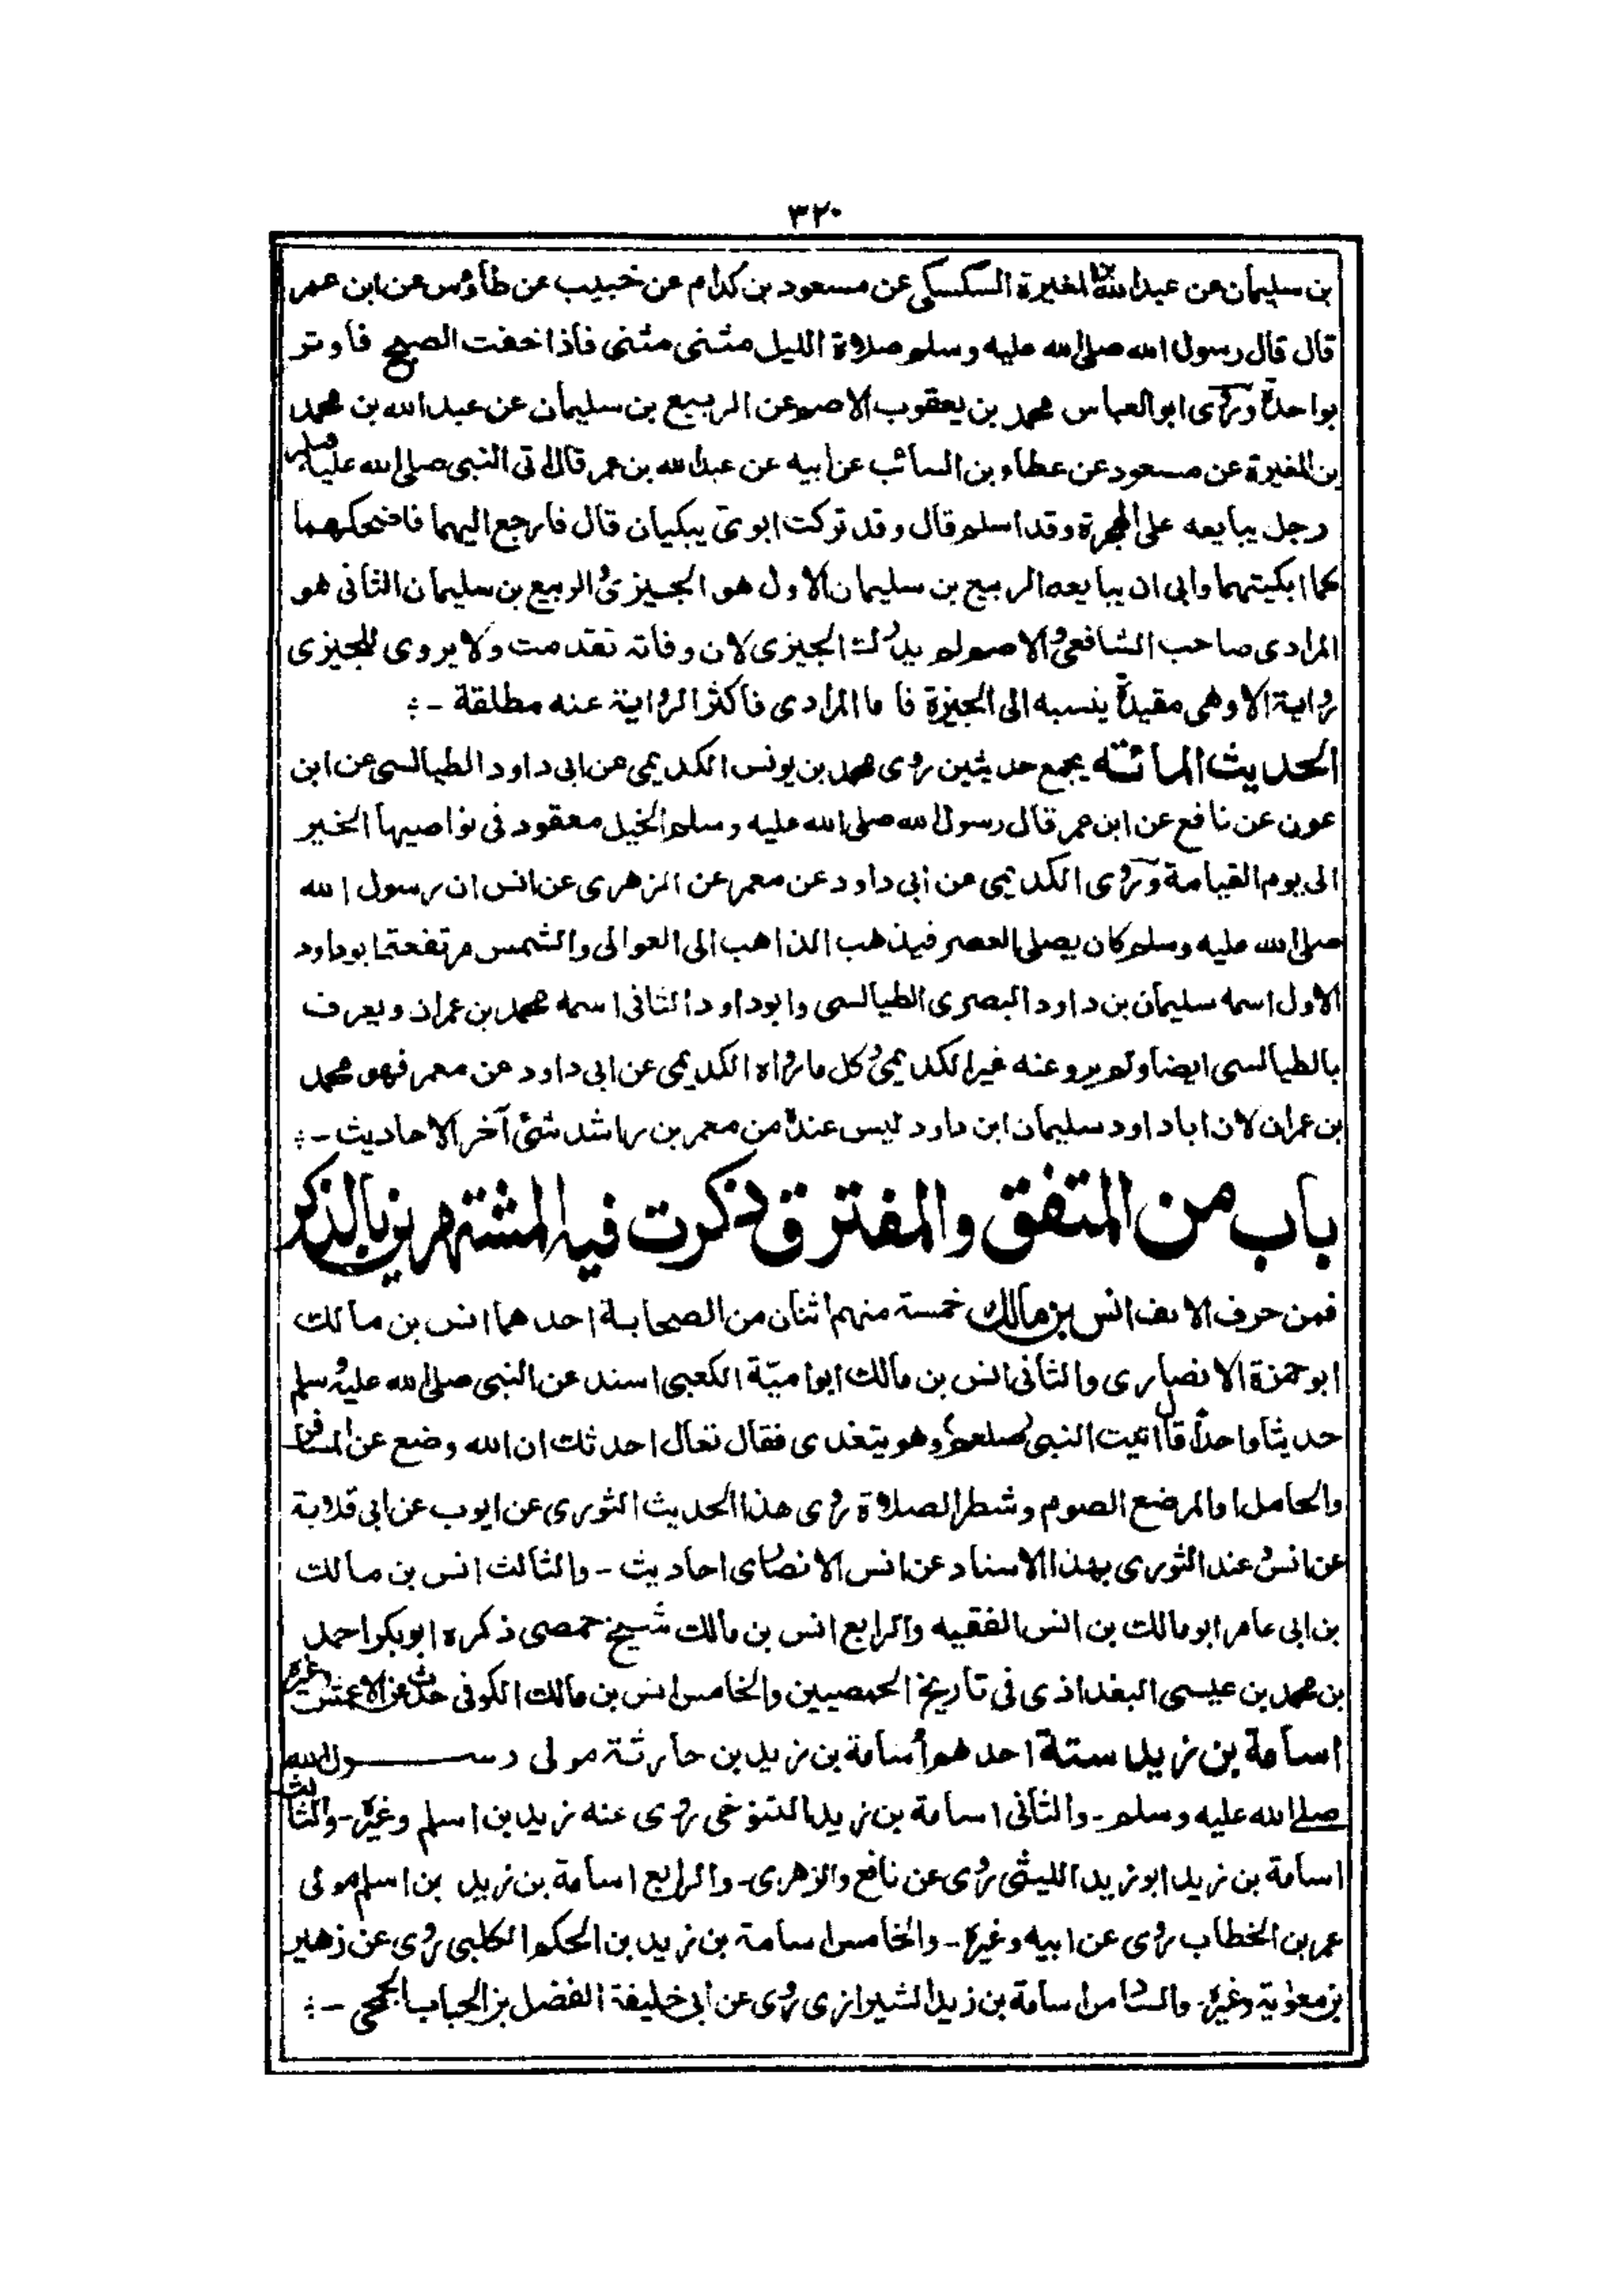 ٣٢٠
بن سليمان عن عبدالله بن المغيرة السكسكى عن مسعود بن كدام عن خبيب عن طاؤس عن ابن عمر
قال قال رسول الله صلى الله عليه وسلم صلاة الليل مثنى مثنى فاذا خفت الصبح فأوتر
بواحدة وروى ابو العباس محمد بن يعقوب الاصم عن الربيع بن سليمان عن عبد الله بن محمد
بن المغيرة عن مسعود عن عطاء بن السائب عن ابيه عن عبد الله بن عمر قال اتى النبى صلى الله عليه وسلم
رجل يبايعه على الهجرة وقد اسلم قال وقد تركت ابوى يبكيان قال فارجع اليهما فاضحكهما
كما ابكيتهما وابى ان يبايعه الربيع بن سليمان الاول هو الجيزى والربيع بن سليمان الثانى هو
المرادى صاحب الشافعى والاصم لم يدرك الجيزى لان وفاته تقدمت ولا يروى للجيزى
رواية الا وهى مقيدة ينسبه الى الجيزة فاما المرادى فاكثر الرواية عنه مطلقة -:
الحديث المائة يجمع حديثين روى محمد بن يونس الكديمى عن ابى داود الطيالسى عن ابن
عون عن نافع عن ابن عمر قال رسول الله صلى الله عليه وسلم الخيل معقود فى نواصيها الخير
الى يوم القيامة وروى الكديمى عن ابى داود عن معمر عن الزهرى عن انس ان رسول الله
صلى الله عليه وسلم كان يصلى العصر فيذهب الذاهب الى العوالى والشمس مرتفعة ابو داود
الاول اسمه سليمان بن داود البصرى الطيالسى وابو داود الثانى اسمه محمد بن عمران ويعرف
بالطيالسى ايضا ولم يرو عنه غير الكديمى وكل ما رواه الكديمى عن ابى داود عن معمر فهو محمد
بن عمران لان ابا داود سليمان ابن داود ليس عنده من معمر بن راشد شئ آخر الاحاديث -:
باب من المتفق والمفترق ذكرت فيه المشتهرين بالذكر
فمن حرف الالف انس بن مالك خمسة منهم اثنان من الصحابة احدهما انس بن مالك
ابو حمزة الانصارى والثانى انس بن مالك ابو امية الكعبى اسند عن النبى صلى الله عليه وسلم
حديثا واحدا قال اتيت النبى صلعم وهو يتغدى فقال تعال احدثك ان الله وضع عن المسافر
والحامل او المرضع الصوم وشطر الصلاة روى هذا الحديث الثورى عن ايوب عن ابى قلابة
عن انس وعند الثورى بهذا الاسناد عن انس الانصارى احاديث - والثالث انس بن مالك
بن ابى عامر ابو مالك بن انس الفقيه والرابع انس بن مالك شيخ حمصى ذكره ابوبكر احمد
بن محمد بن عيسى البغداذى فى تاريخ الحمصيين والخامس انس بن مالك الكوفى حدث عن الاعمش وغيره
اسامة بن زيد ستة احدهم اسامة بن زيد بن حارثة مولى رسول الله
صلى الله عليه وسلم - والثانى اسامة بن زيد التنوخى روى عنه زيد بن اسلم وغيره - والثالث
اسامة بن زيد ابو زيد الليثى روى عن نافع والزهرى - والرابع اسامة بن زيد بن اسلم مولى
عمر بن الخطاب روى عن ابيه وغيره - والخامس اسامة بن زيد بن الحكم الكلبى روى عن زهير
بن معوية وغيره - والسادس اسامة بن زيد الشيرازى روى عن ابى خليفة الفضل بن الحباب الجمحى -: